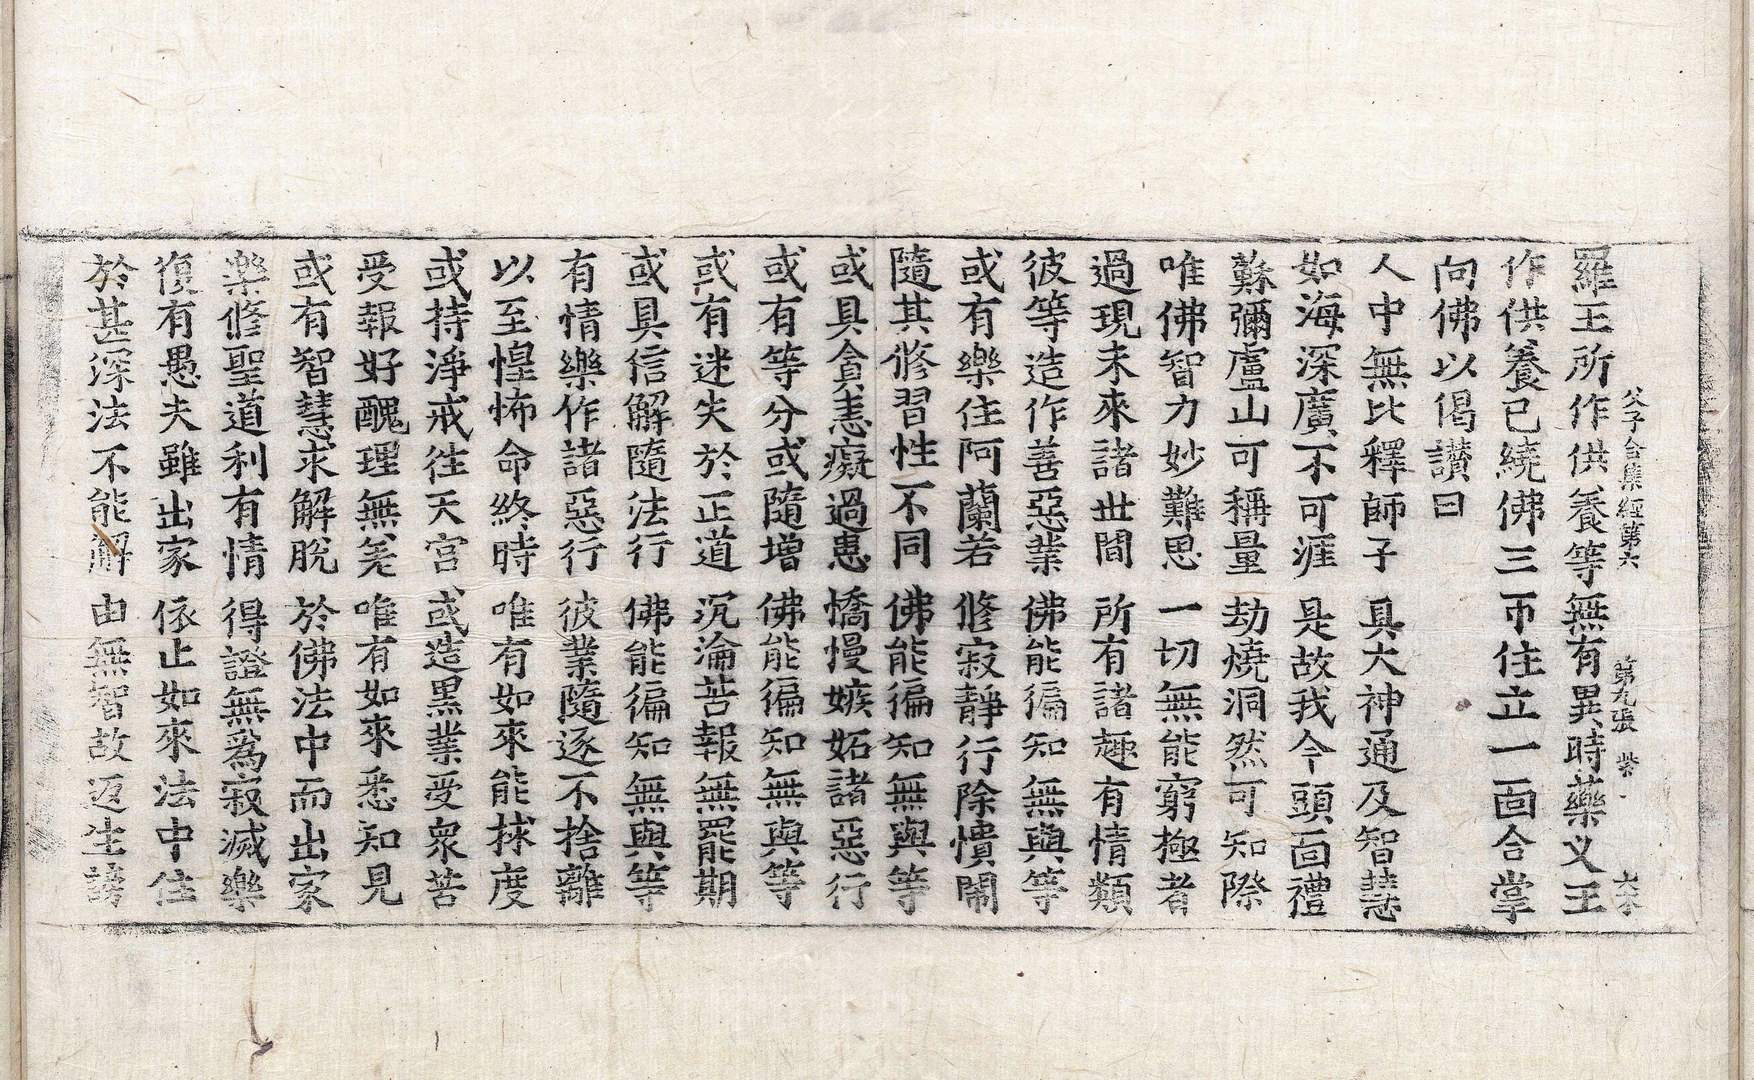 父子合集經第六 第九張 紫
羅王所作供養等無有異時藥叉王
作供養已繞佛三帀住立一面合掌
向佛以偈讃曰
人中無比釋師子 具大神通及智慧
如海深廣不可涯 是故我今頭面禮
蘇彌盧山可稱量 劫燒洞然可知際
唯佛智力妙難思 一切無能窮極者
過現未來諸世間 所有諸趣有情類
彼等造作善惡業 佛能徧知無與等
或有樂住阿蘭若 修寂靜行除憒鬧
隨其修習性不同 佛能徧知無與等
或具貪恚癡過患 憍慢嫉妬諸惡行
或有等分或隨增 佛能徧知無與等
或有迷失於正道 沉淪苦報無罷期
或具信解隨法行 佛能徧知無與等
有情樂作諸惡行 彼業隨逐不捨離
以至惶怖命終時 唯有如來能捄度
或持淨戒往天宮 或造黑業受衆苦
受報好醜理無差 唯有如來悉知見
或有智慧求解脫 於佛法中而出家
樂修聖道利有情 得證無爲寂滅樂
復有愚夫雖出家 依止如來法中住
於甚深法不能解 由無智故返生謗